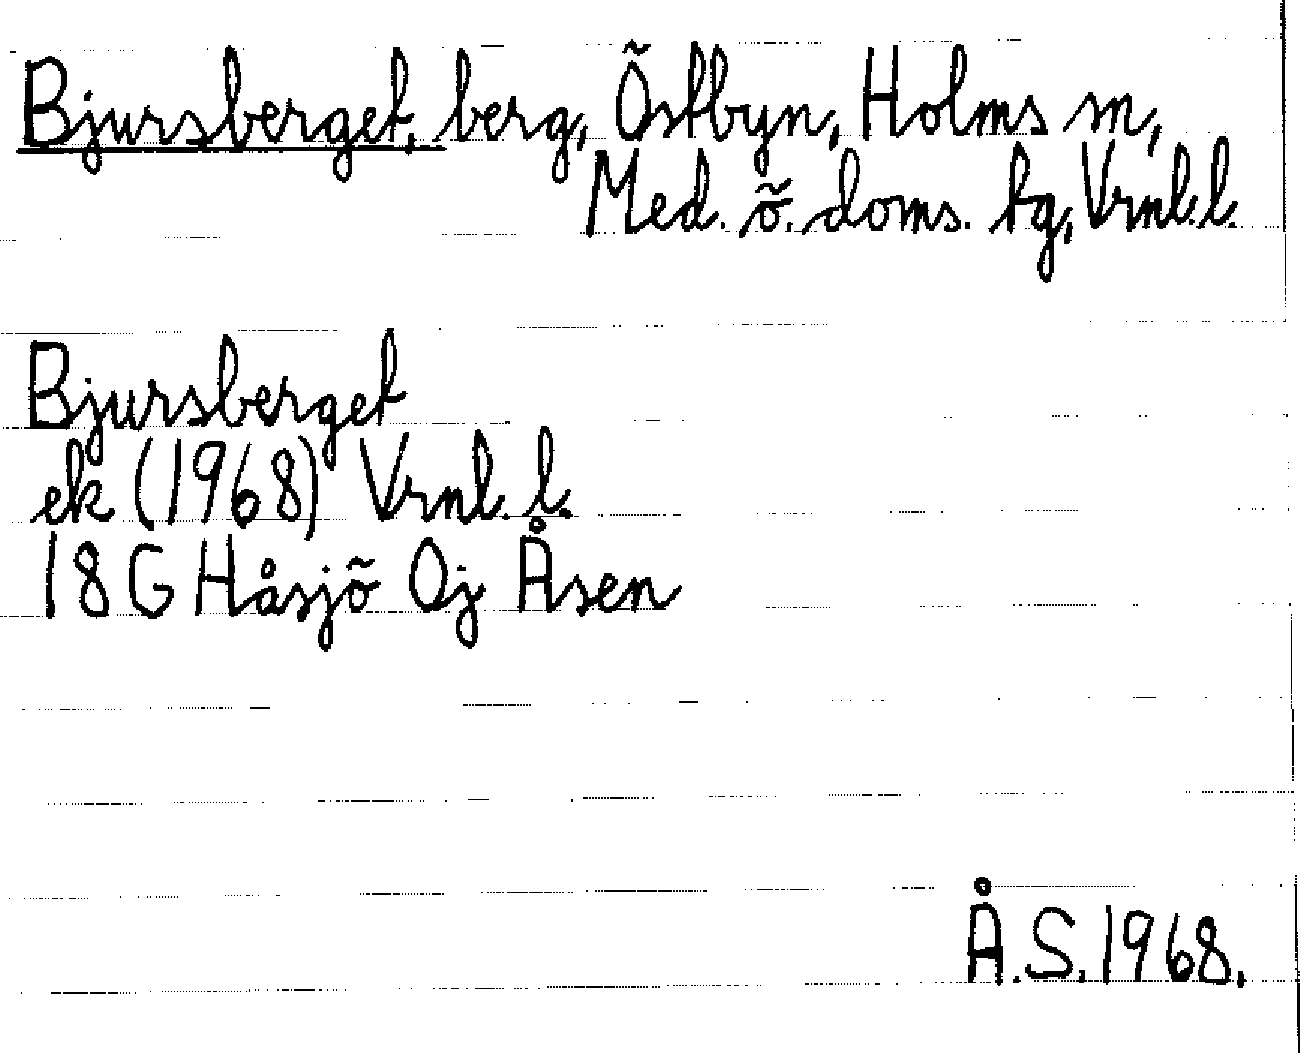 Bjursberget, berg, Östbyn, Holms sn,
Med. ö. doms. tg, Vrnl. l.
Bjursberget
ek (1968) Vrnl. l.
18 G Håsjö Oj Åsen
Å.S. 1968.